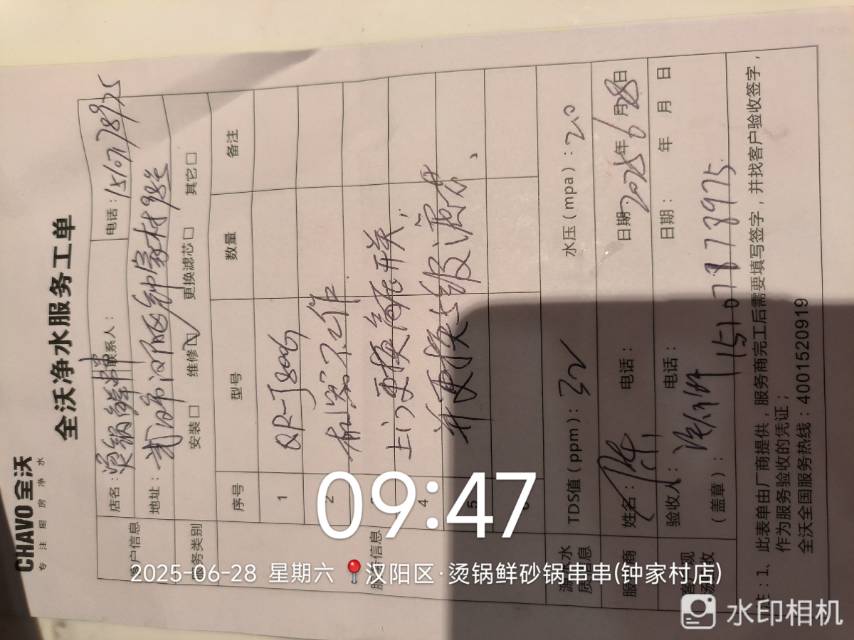 CHAVO 全沃
专 注 厨 房 净 水
全沃净水服务工单
客户信息
店名：烫锅鲜 联系人： 电话：15107878975
地址：武汉市汉阳区钟家村
服务类别 安装□ 维修□ 更换滤芯□ 其它□
服务信息
序号 型号 数量 备注
1 QR-J800G
2 机器不工作
上门更换高压开关，
4
5 并更换三级滤芯、
6
TDS值（ppm）：32 水压（mpa）：20
服务商 姓名： 电话： 日期2025年6月28日
验收人： 电话： 日期： 年 月 日
（盖章）： 15107878975
注：1、此表单由厂商提供，服务商完工后需要填写签字，并找客户验收签字，
作为服务验收的凭证；
全沃全国服务热线：4001520919
09:47
2025-06-28 星期六 汉阳区·烫锅鲜砂锅串串(钟家村店)
水印相机